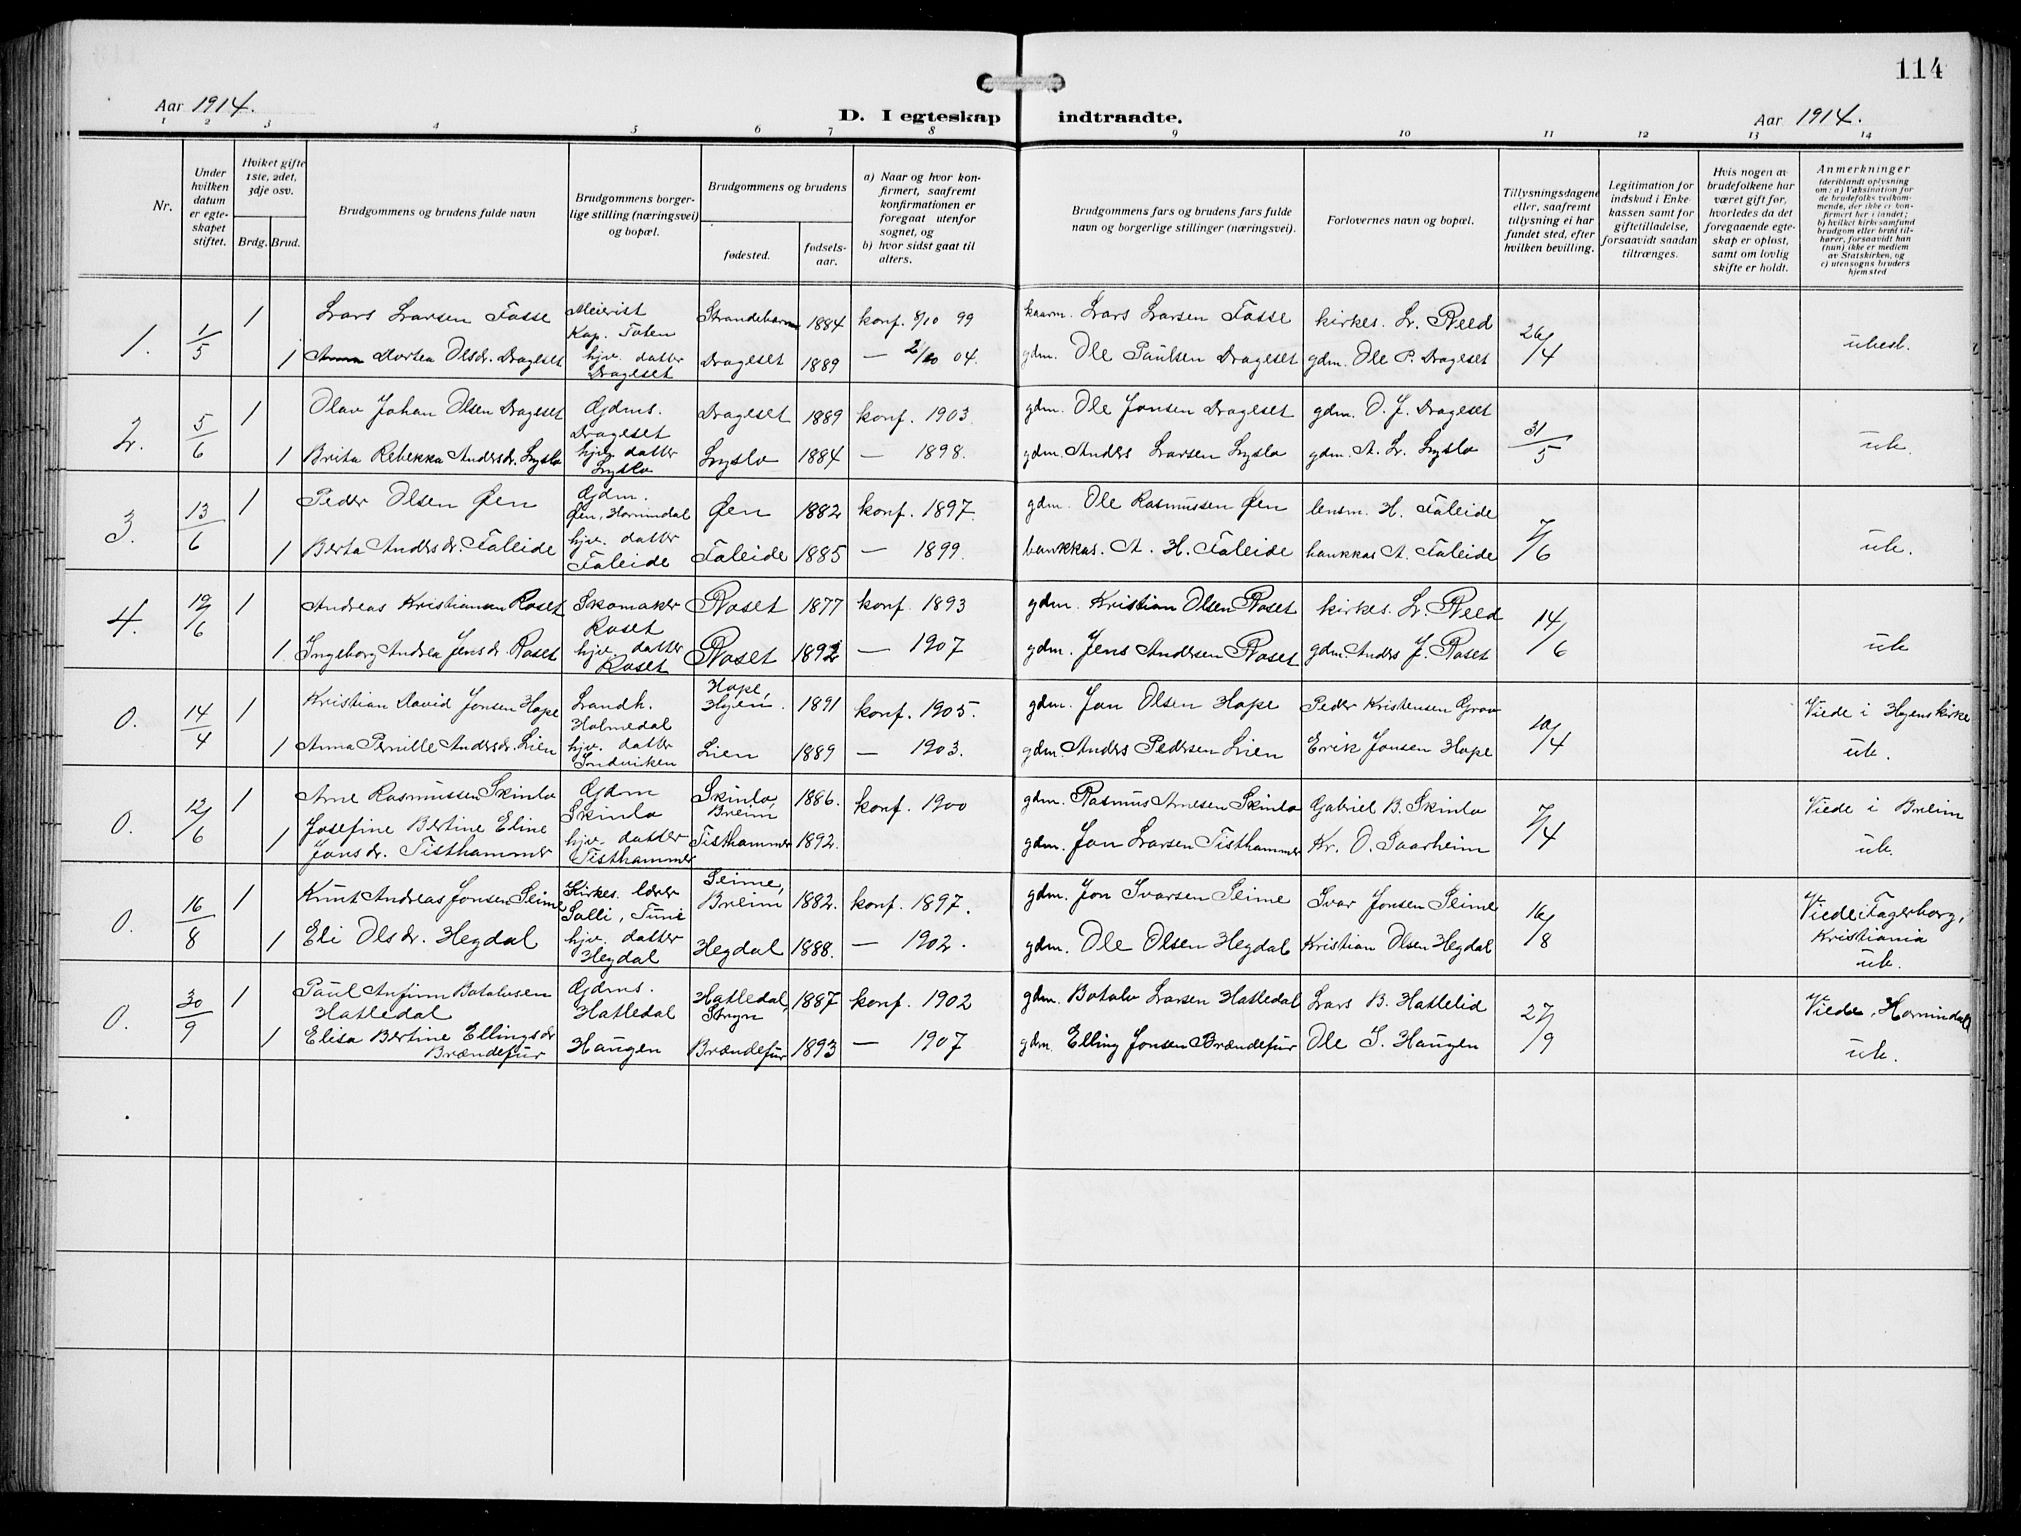 114
Aar 1914.
D. I egteskap indtraadte.
Aar 1914.
1 2 3 4 5 6 7 8 9 10 11 12 13 14
Nr.
Under hvilken datum er egte-skapet stiftet.
Hviket gifte 1ste, 2det, 3dje osv.
Brdg. Brud.
Brudgommens og brudens fulde navn
Brudgommens borger-lige stilling (næringsvei) og bopæl.
Brudgommens og brudens
fødested.
fødsels-aar.
a) Naar og hvor kon-firmert, saafremt konfirmationen er foregaat utenfor sognet, og
b) hvor sidst gaat til alters.
Brudgommens fars og brudens fars fulde navn og borgerlige stillinger (næringsvei).
Forlovernes navn og bopæl.
Tillysningsdagene eller, saafremt tillysning ei har fundet sted, efter hvilken bevilling.
Legitimation for indskud i Enke-kassen samt for giftetilladelse, forsaavidt saadan tiltrænges.
Hvis nogen av brudefolkene har været gift før, hvorledes da det foregaaende egte-skap er opløst, samt om lovlig skifte er holdt.
Anmerkninger (deriblandt oplysning om: a) Vaksination for de brudefolks vedkom-mende, der ikke er kon-firmert her i landet; b) hvilket kirkesamfund brudgom eller brud til-hører, forsaavidt han (hun) ikke er medlem av Statskirken, og c) utensogns bruders hjemsted
1. 1/5 1 Lars Larsen Fosse Meierist Kap. Toten Strandebarm 1884 konf. 8/10 99 kaarm. Lars Larsen Fosse kirkes. L. Reed 26/4 ubesl.
1 Anna Dortea Olsdr. Drageset hjv. datter Drageset Drageset 1889 — 2/10 04. gdm. Ole Paulsen Drageset gdm. Ole P. Drageset
2. 5/6 1 Olav Johan Olsen Drageset Gdms. Drageset Drageset 1889 konf. 1903 gdm. Ole Jonsen Drageset gdm. O. J. Drageset 31/5 ub.
1 Brita Rebekka Andersdr. Lyslo hjv. datter Lyslo Lyslo 1884 — 1898. gdm. Anders Larsen Lyslo gdm. A. L. Lyslo
3. 13/6 1 Peder Olsen Øen Gdm. Øen, Hornindal Øen 1882 konf. 1897. gdm. Ole Rasmussen Øen lensm. H. Faleide 7/6 ub.
1 Berta Andersdr. Faleide hjv. datter Faleide Faleide 1885 — 1899. bankkas. A. H. Faleide bankkas A. Faleide
4. 19/6 1 Andreas Kristiansen Roset Skomaker Roset Roset 1877 konf. 1893 gdm. Kristian Olsen Roset kirkes. L. Reed 14/6 ub
1 Ingeborg Andrea Jensdr. Roset hjv. datter Roset Roset 1892 — 1907 gdm. Jens Andersen Roset gdm. Anders J. Roset
0. 14/4 1 Kristian David Jonsen Hope Landh. Holmedal Hope, Hyen. 1891 konf. 1905. gdm. Jon Olsen Hope Peder Kristensen Grov 10/4 Viede i Hyens kirke ub.
1 Anna Pernille Andersdr. Lien hjv. datter Sandviken Lien 1889 — 1903. gdm. Anders Pedersen Lien Erik Jonsen Hope
0. 12/6 1 Arne Rasmussen Skinlo Gdm Skinlo Skinlo, Breim 1886. konf. 1900 gdm. Rasmus Arnesen Skinlo Gabriel B. Skinlo 7/4 Viede i Breim ub.
1 Josefine Bertine Eline Jonsdr. Tisthammer hjv. datter Tisthammer Tisthammer 1892. gdm. Jon Larsen Tisthammer Kr. O. Saarheim
0. 16/8 1 Knut Andreas Jonsen Seime Kirkes. lærer Salli, Tune Seime, Breim 1882. konf. 1897. gdm. Jon Ivarsen Seime Ivar Jonsen Seime 16/8 Viede i Fagerborg, Kristiania ub.
1 Eli Olsdr. Hegdal hjv. datter Hegdal Hegdal 1888. — 1902. gdm. Ole Olsen Hegdal Kristian Olsen Hegdal
0. 30/9 1 Paul Anfinn Botolvsen Hatledal Gdms. Hatledal Hatledal, Stryn 1887 konf. 1902 gdm. Botolv Larsen Hatledal Lars B. Hatlelid 27/9 Viede, Hornindal ub.
1 Elisa Bertine Ellingsdr Brændefur Haugen Brændefur 1893 — 1907 gdm. Elling Jonsen Brændefur Ole S. Haugen